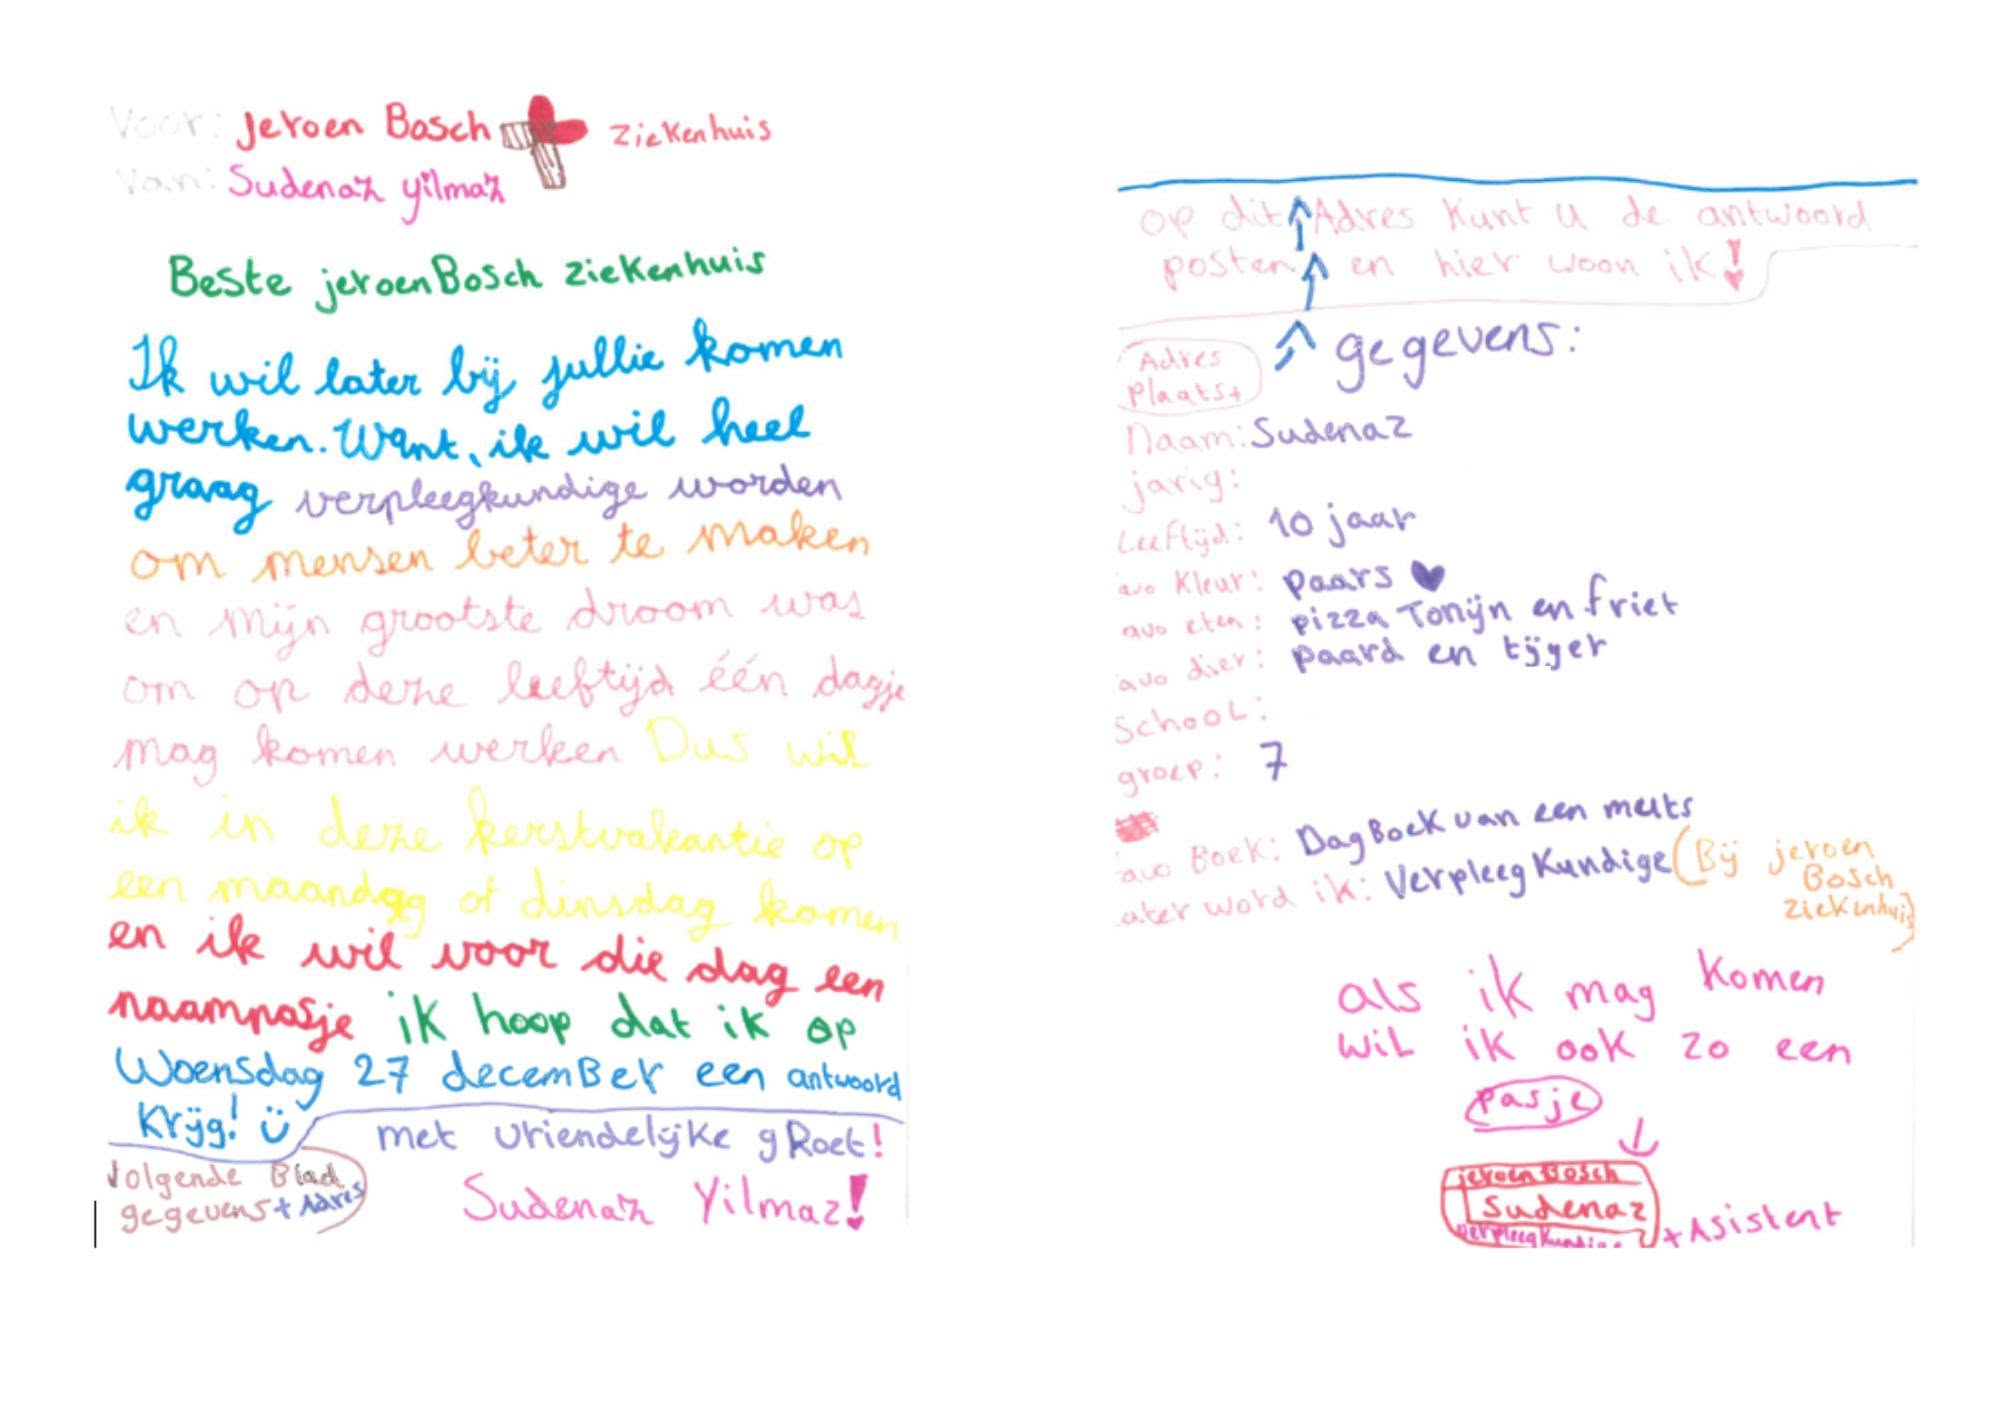 Voor: Jeroen Bosch ziekenhuis
Van: Sudenaz yilmaz
Beste jeroen Bosch ziekenhuis
Ik wil later bij jullie komen
werken. Want, ik wil heel
graag verpleegkundige worden
om mensen beter te maken
en mijn grootste droom was
om op deze leeftijd één dagje
mag komen werken Dus wil
ik in deze kerstvakantie op
een maandag of dinsdag komen
en ik wil voor die dag een
naampasje ik hoop dat ik op
Woensdag 27 decemBer een antwoord
Krijg! ü
met vriendelijke gRoet!
volgende Blad
gegevens + Adres
Sudenaz Yilmaz!
op dit Adres Kunt u de antwoord
posten en hier woon ik!
Adres
Plaats+
gegevens:
Naam: Sudenaz
jarig:
Leeftijd: 10 jaar
avo Kleur: paars ♥
avo eten: pizza Tonijn en friet
avo dier: paard en tijger
SchooL:
groep: 7
avo Boek: DagBoek van een muts
ater word ik: VerpleegKundige (Bij jeroen
Bosch
ziekenhuis)
als ik mag komen
wiL ik ook zo een
pasje
jeroen Bosch
Sudenaz
verpleegKundige
+ Asistent